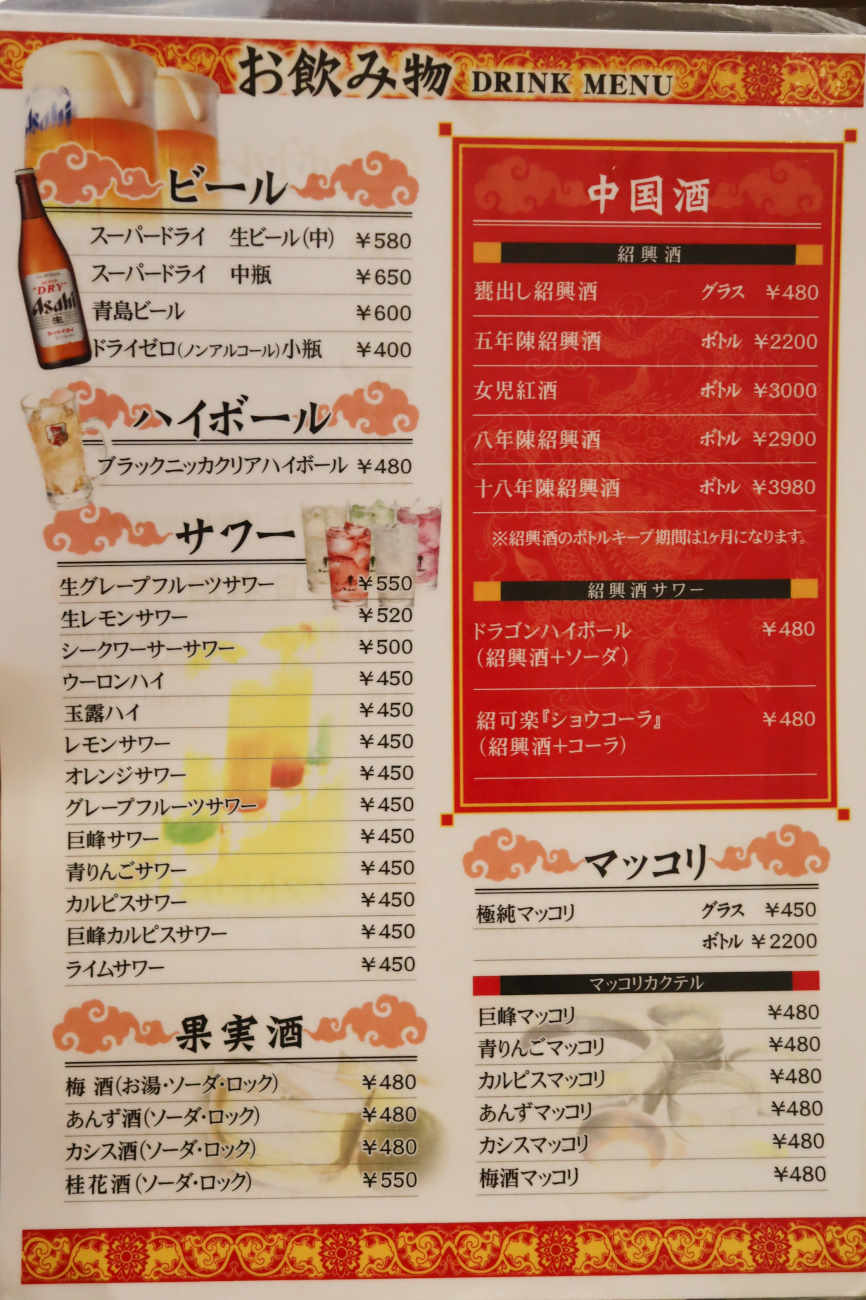 お飲み物 DRINK MENU
ビール
スーパードライ 生ビール(中) ¥580
スーパードライ 中瓶 ¥650
青島ビール ¥600
ドライゼロ(ノンアルコール)小瓶 ¥400
ハイボール
ブラックニッカクリアハイボール ¥480
サワー
生グレープフルーツサワー ¥550
生レモンサワー ¥520
シークワーサーサワー ¥500
ウーロンハイ ¥450
玉露ハイ ¥450
レモンサワー ¥450
オレンジサワー ¥450
グレープフルーツサワー ¥450
巨峰サワー ¥450
青りんごサワー ¥450
カルピスサワー ¥450
巨峰カルピスサワー ¥450
ライムサワー ¥450
果実酒
梅酒(お湯・ソーダ・ロック) ¥480
あんず酒(ソーダ・ロック) ¥480
カシス酒(ソーダ・ロック) ¥480
桂花酒(ソーダ・ロック) ¥550
中国酒
紹興酒
甕出し紹興酒 グラス ¥480
五年陳紹興酒 ボトル ¥2200
女児紅酒 ボトル ¥3000
八年陳紹興酒 ボトル ¥2900
十八年陳紹興酒 ボトル ¥3980
※紹興酒のボトルキープ期間は1ヶ月になります。
紹興酒サワー
ドラゴンハイボール ¥480
(紹興酒+ソーダ)
紹可楽『ショウコーラ』 ¥480
(紹興酒+コーラ)
マッコリ
極純マッコリ グラス ¥450
ボトル ¥2200
マッコリカクテル
巨峰マッコリ ¥480
青りんごマッコリ ¥480
カルピスマッコリ ¥480
あんずマッコリ ¥480
カシスマッコリ ¥480
梅酒マッコリ ¥480
Asahi
"DRY"
Asahi
生